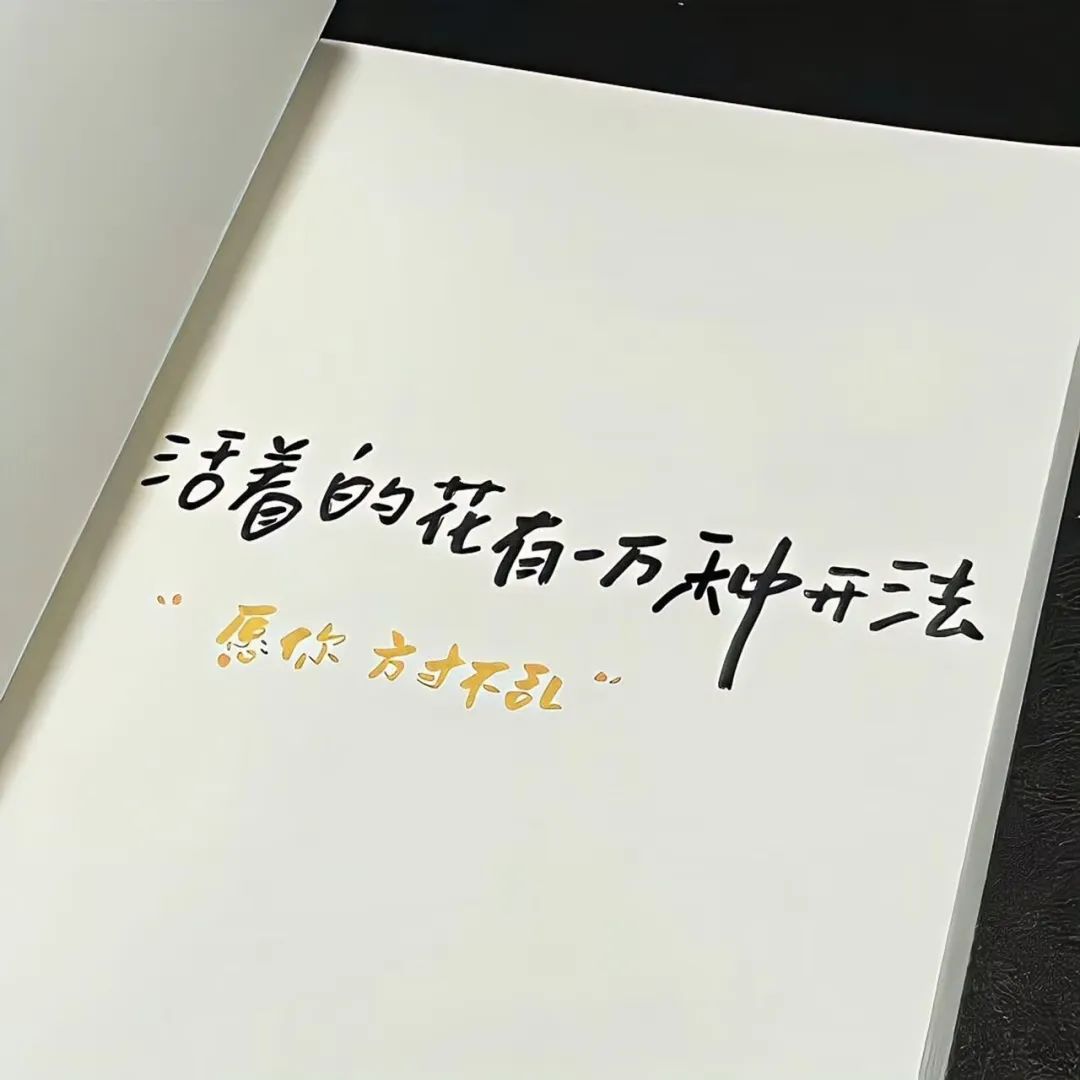 活着的花有一万种开法
“愿你 方寸不乱“